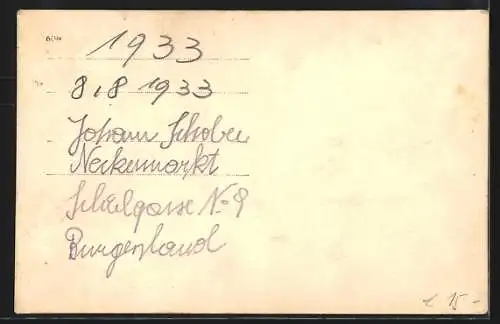 1933
8,8 1933
Johann Schober
Neckenmarkt
gasse No 9
Burgenland
15-